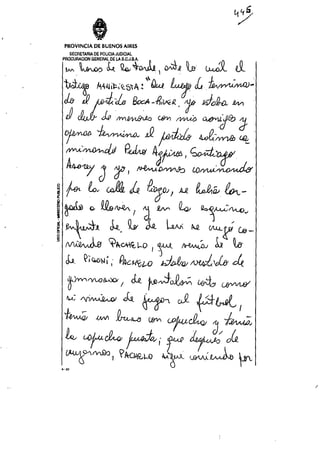 445
PROVINCIA DE BUENOS AIRES
SECRETARIA DE POLICIA JUDICIAL
PROCURACION GENERAL DE LA S.C.J.B.A.
horas de la tarde, ante lo cual el
testigo MANIFIESTA: "Que luego de termina-
do el partido BOCA-RIVER, yo estaba en
el club de menores con mis amigos y
apenas termina el partido salimos ca-
minando Pedro Agπ, Santiago
y yo, veniamos caminando
por la calle de Riego, se había lar-
gado a llover, y en la esquina,
enfrente de lo de se cruzó co-
rriendo PACHELO, que venía de lo
de PIGONI; PACHELO estaba vestido de
gimnasia, de pantalón corto como
si viniera de jugar al fútbol,
tenía un buzo con capucha y tenía
la capucha puesta; que después de
cruzarnos, PACHELO sigue corriendo por
USO OFICIAL MINISTERIO PUBLICO